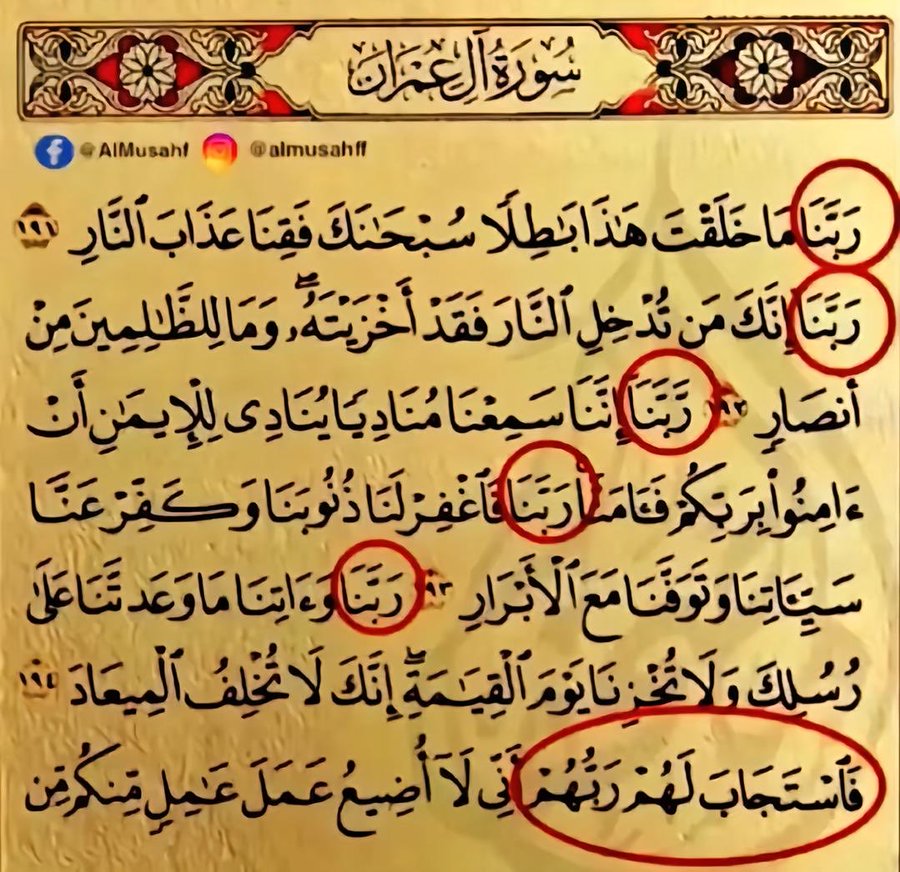 سُورَةُ آلِ عِمْرَان
@AlMusahf @almusahff
رَبَّنَا مَا خَلَقْتَ هَٰذَا بَٰطِلًا سُبْحَٰنَكَ فَقِنَا عَذَابَ ٱلنَّارِ ١٩١
رَبَّنَا إِنَّكَ مَن تُدْخِلِ ٱلنَّارَ فَقَدْ أَخْزَيْتَهُۥۖ وَمَا لِلظَّٰلِمِينَ مِنْ
أَنصَارٍ ١٩٢ رَّبَّنَا إِنَّنَا سَمِعْنَا مُنَادِيًا يُنَادِى لِلْإِيمَٰنِ أَنْ
ءَامِنُوا۟ بِرَبِّكُمْ فَـَٔامَنَّا رَبَّنَا فَٱغْفِرْ لَنَا ذُنُوبَنَا وَكَفِّرْ عَنَّا
سَيِّـَٔاتِنَا وَتَوَفَّنَا مَعَ ٱلْأَبْرَارِ ١٩٣ رَبَّنَا وَءَاتِنَا مَا وَعَدتَّنَا عَلَىٰ
رُسُلِكَ وَلَا تُخْزِنَا يَوْمَ ٱلْقِيَٰمَةِۖ إِنَّكَ لَا تُخْلِفُ ٱلْمِيعَادَ ١٩٤
فَٱسْتَجَابَ لَهُمْ رَبُّهُمْ أَنِّى لَآ أُضِيعُ عَمَلَ عَٰمِلٍ مِّنكُم مِّن